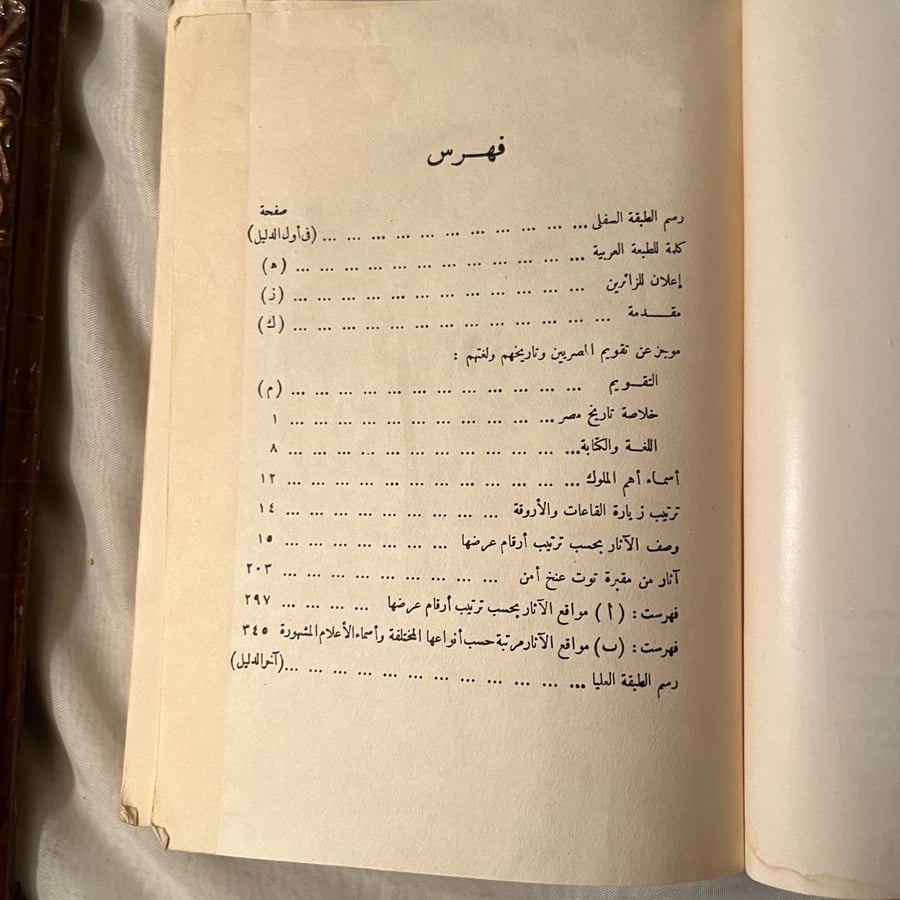 فهرس
صفحة
رسم الطبقة السفلى ... ... ... ... ... ... ... ... ... ... ... (في أول الدليل)
كلمة للطبعة العربية ... ... ... ... ... ... ... ... ... ... ... ... (ه)
إعلان للزائرين ... ... ... ... ... ... ... ... ... ... ... ... (ز)
مقدمة ... ... ... ... ... ... ... ... ... ... ... ... ... (ك)
موجز عن تقويم المصريين وتاريخهم ولغتهم :
التقويم ... ... ... ... ... ... ... ... ... ... ... ... (م)
خلاصة تاريخ مصر ... ... ... ... ... ... ... ... ... ... ... ١
اللغة والكتابة ... ... ... ... ... ... ... ... ... ... ... ... ٨
أسماء أهم الملوك ... ... ... ... ... ... ... ... ... ... ... ... ١٢
ترتيب زيارة القاعات والأروقة ... ... ... ... ... ... ... ... ... ١٤
وصف الآثار بحسب ترتيب أرقام عرضها ... ... ... ... ... ... ... ١٥
آثار من مقبرة توت عنخ أمن ... ... ... ... ... ... ... ... ... ٢٠٣
فهرست : (أ) مواقع الآثار بحسب ترتيب أرقام عرضها ... ... ... ... ٢٩٧
فهرست : (ب) مواقع الآثار مرتبة حسب أنواعها المختلفة وأسماء الأعلام المشهورة ٣٤٥
رسم الطبقة العليا ... ... ... ... ... ... ... ... ... ... ... ... ... (آخر الدليل)